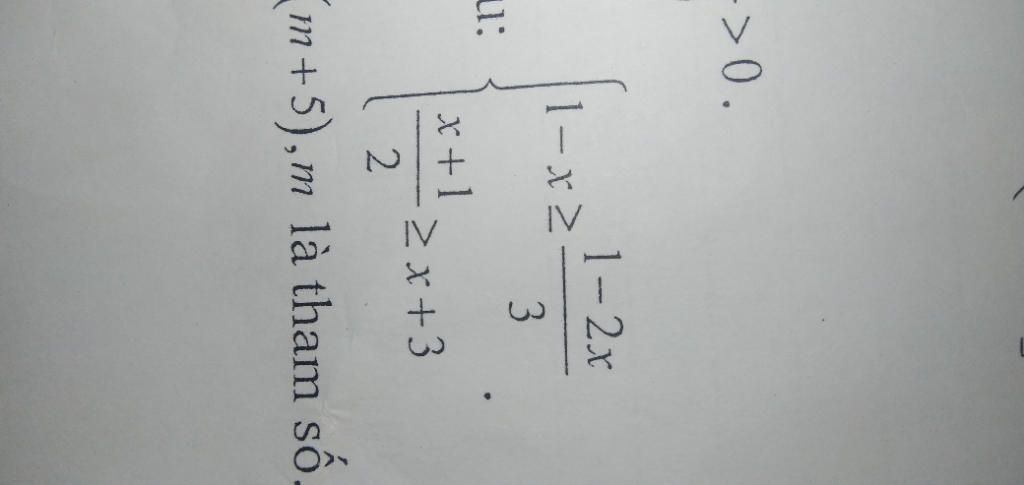 > 0 .
u: { 1 − x ≥ (1 − 2x)/3
(x + 1)/2 ≥ x + 3 .
(m + 5), m là tham số.